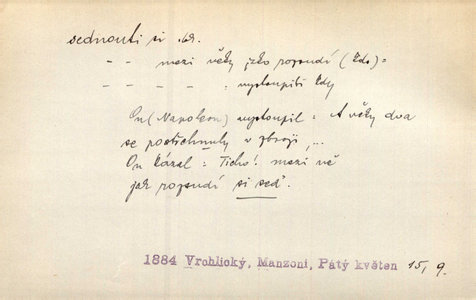 sednouti si
- - mezi věky jako rozsudí (kdo) =
- - - - - : vystoupiti kdy
On (Napoleon) vystoupil : A věky dva
se postřehnuly v zbroji, ...
On kázal : Ticho! mezi ně
jak rozsudí si sed'.
1884 Vrchlický, Manzoni, Pátý květen 15, 9.